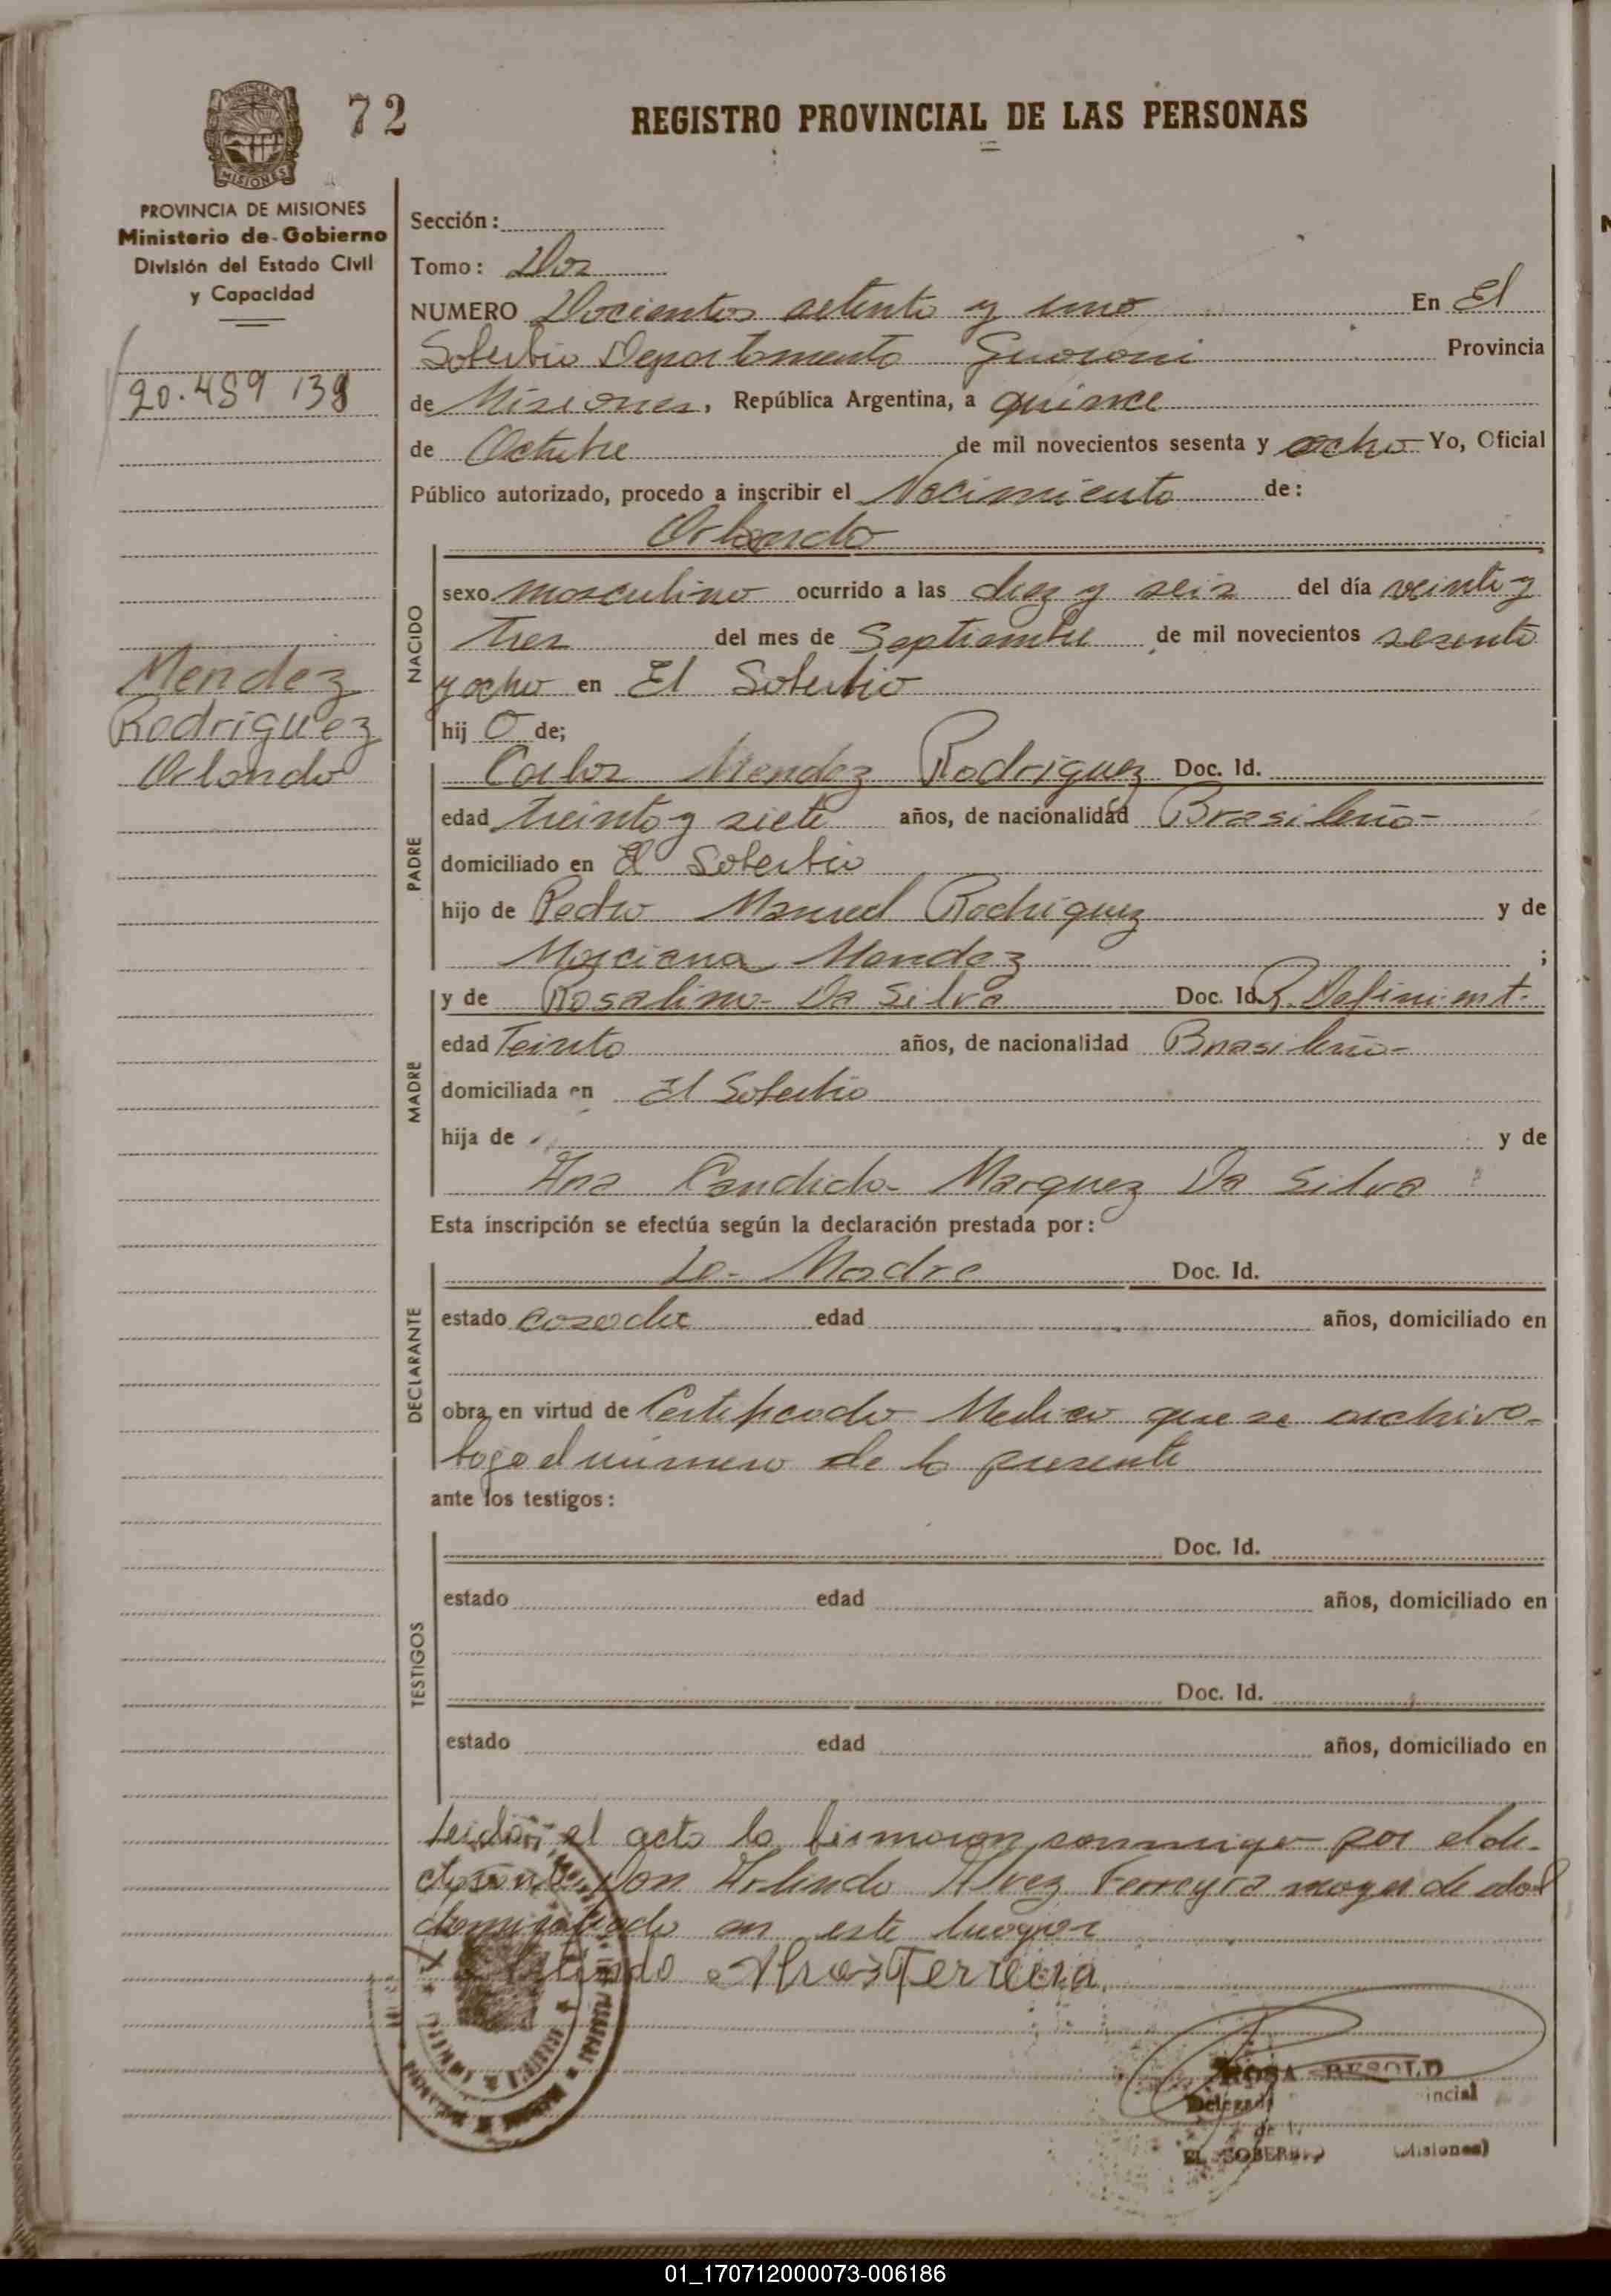 72
REGISTRO PROVINCIAL DE LAS PERSONAS
PROVINCIA DE MISIONES
Ministerio de Gobierno
División del Estado Civil
y Capacidad
20.459 139
Mendez
Rodriguez
Orlando
Sección:
Tomo: Dos
NUMERO Docientos setenta y uno En El
Soberbio Departamento Guarani Provincia
de Misiones, República Argentina, a quince
de Octubre de mil novecientos sesenta y ocho Yo, Oficial
Público autorizado, procedo a inscribir el Nacimiento de:
Orlando
NACIDO
sexo masculino ocurrido a las diez y seis del día veinte y
tres del mes de Septiembre de mil novecientos sesenta
y ocho en El Soberbio
hij o de;
PADRE
Carlos Mendez Rodriguez Doc. Id.
edad treinta y siete años, de nacionalidad Brasileña-
domiciliado en El Soberbio
hijo de Pedro Manuel Rodriguez y de
Marciana Mendez ;
MADRE
y de Rosalina Da Silva Doc. Id.
edad Teinta años, de nacionalidad Brasileña-
domiciliada en El Soberbio
hija de y de
Ana Candida Marquez Da Silva
Esta inscripción se efectúa según la declaración prestada por:
DECLARANTE
La Madre Doc. Id.
estado casada edad años, domiciliado en
obra en virtud de Certificado Medico que se archiva
bajo el numero de la presente
ante los testigos:
TESTIGOS
Doc. Id.
estado edad años, domiciliado en
Doc. Id.
estado edad años, domiciliado en
Leida el acta la firmaron conmigo por el de-
clarante Don Arlindo Alvez Ferreyra mayor de edad
domiciliado en este lugar
Ferreira
ROSA BESOLD
EL SOBERBIO (Misiones)
01_170712000073-006186